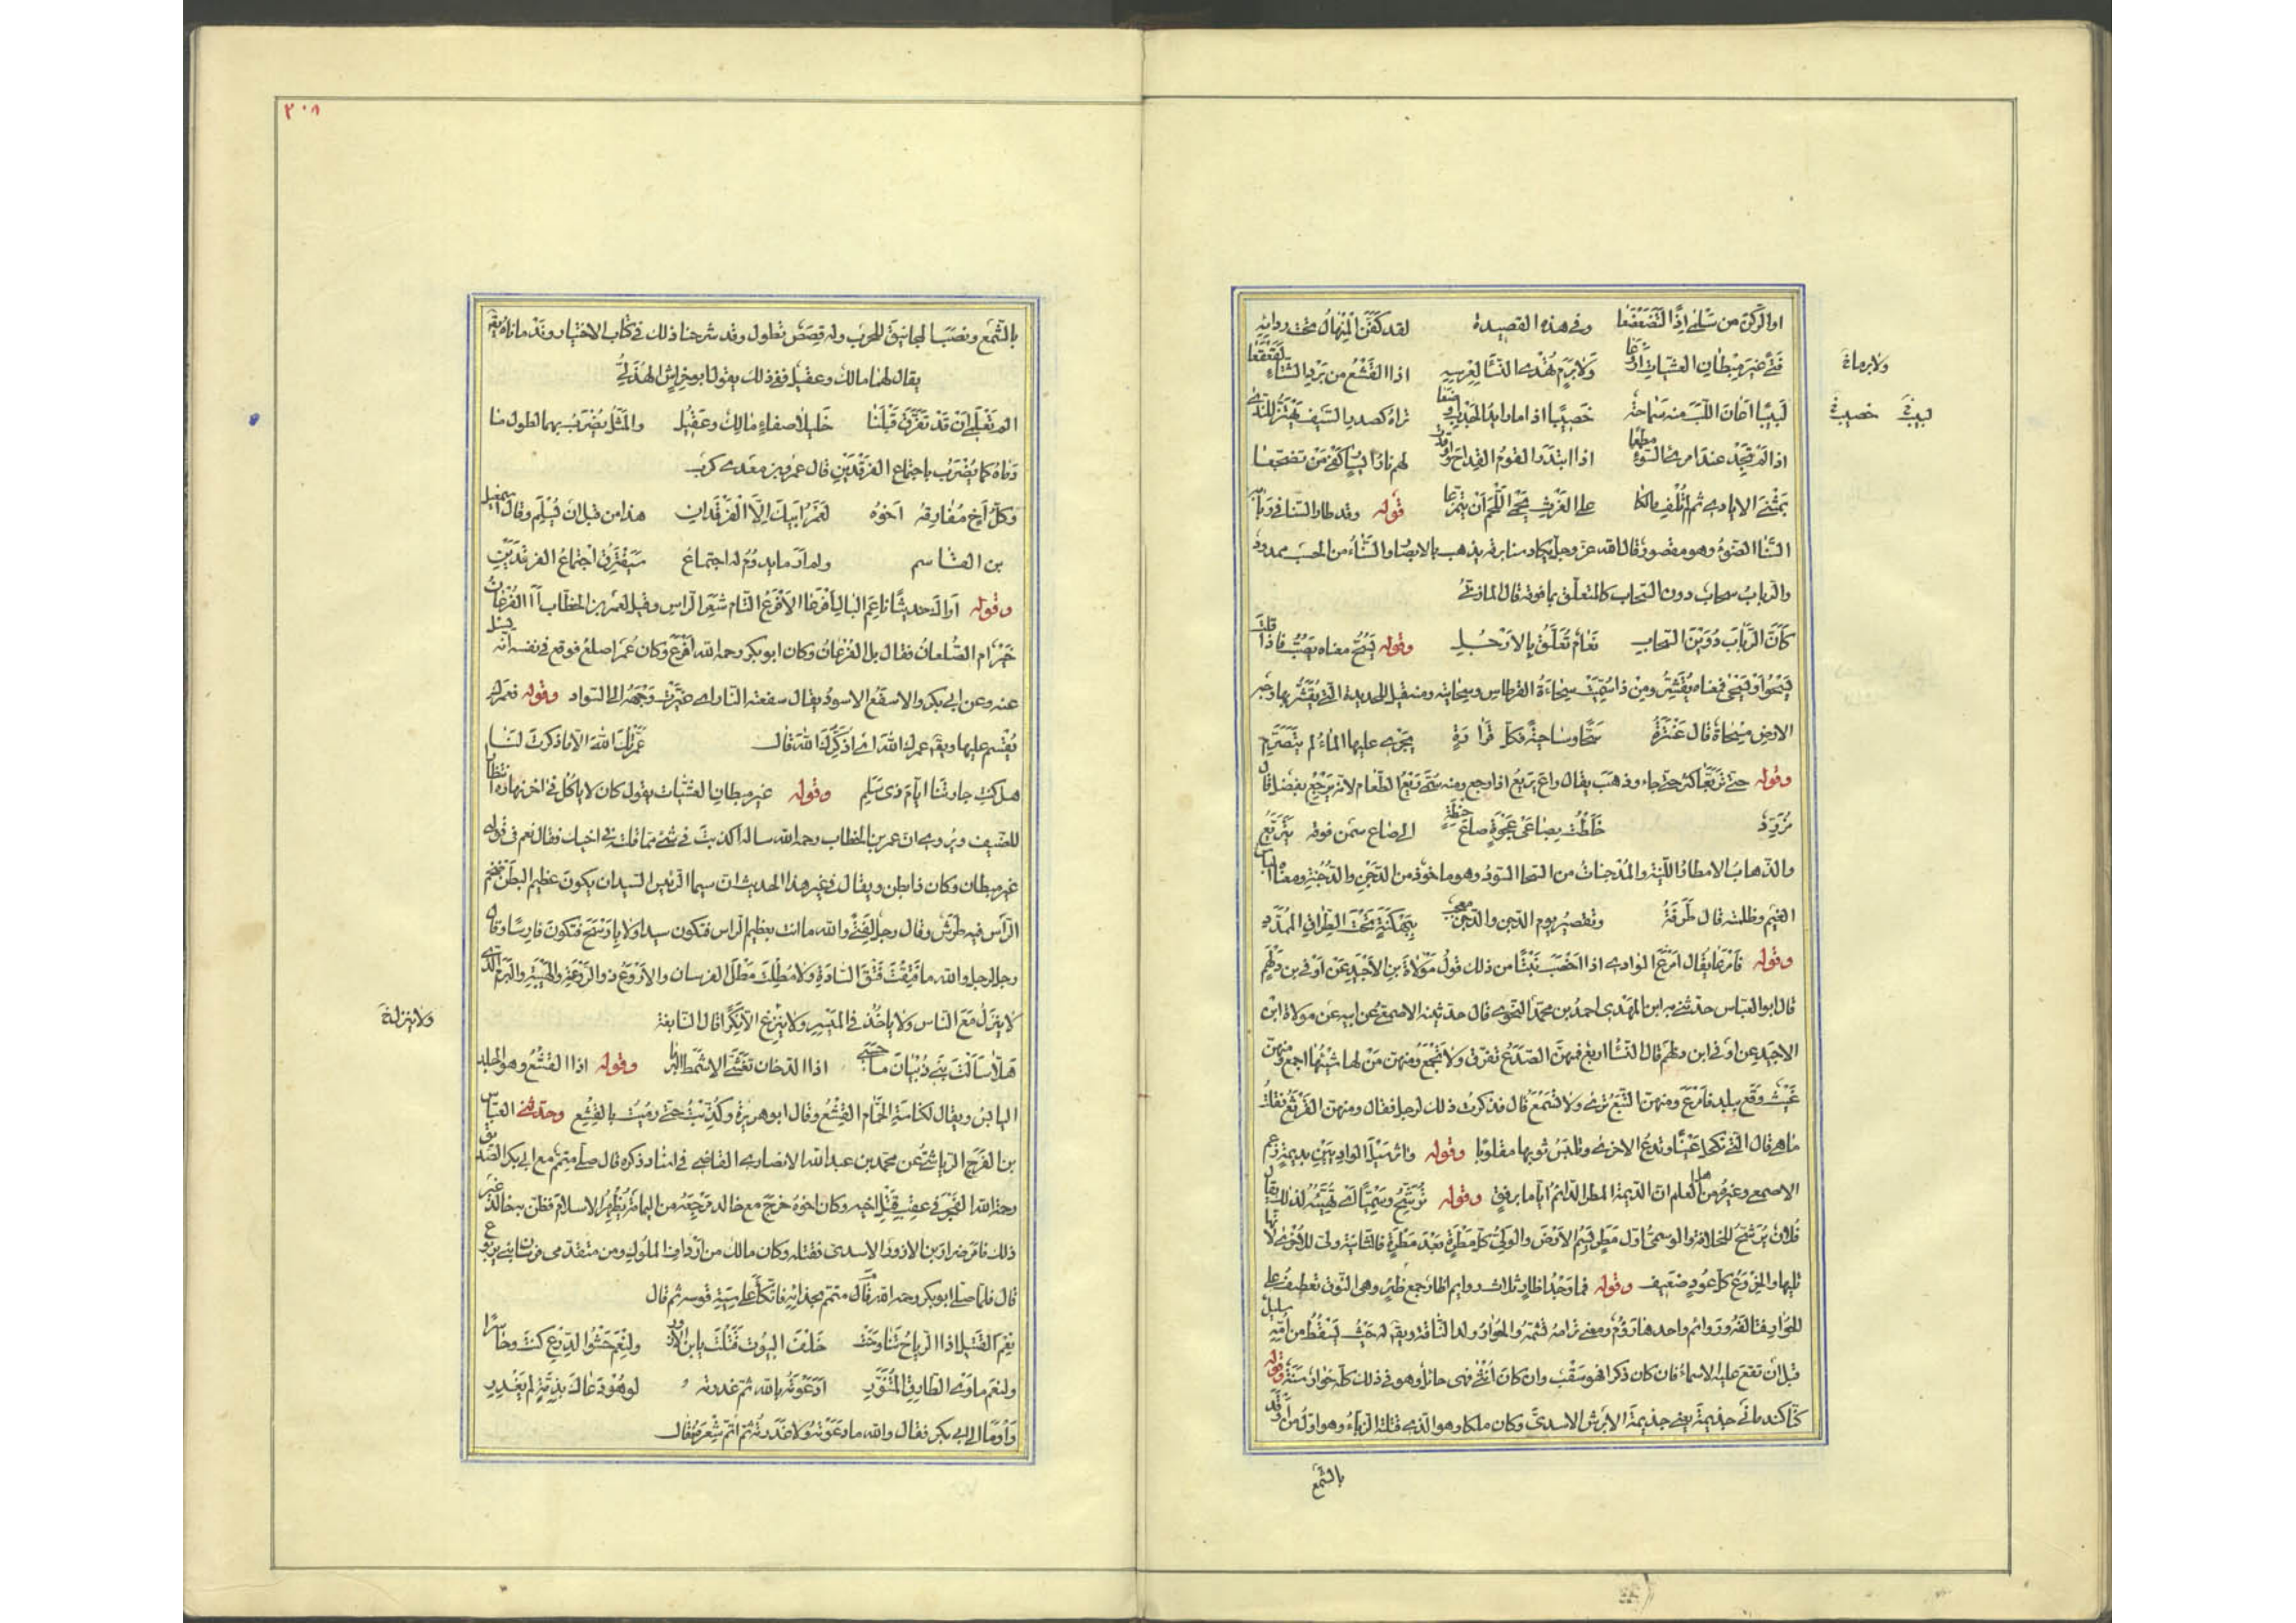 او الركن من سَلمى اِذًا لَتَضَعضَعا وفى هذه القصيدة لقد كَفَّنَ المِنهالُ تحت ردائِه
فَتًى غيرَ مِبطانِ العشيّاتِ أروَعا وَلا بَرَمٍ تُهدى النساءُ لِعِرسِهِ اذا القَشْعُ من بَردِ الشتاءِ تَقَعقَعا
ولا برما خ
لَبيبًا اَعانَ اللُّبَّ منه سَماحة خَصيبًا اذا ما رايدُ الجَدبِ اَوضَعا تراهُ كصدرِ السَيفِ يَهتَزُّ للنَّدى
لبيب خ خصيب خ
اذا لم تَجِد عند امرئ السَّوءِ مَطمَعًا اذا ابتدَرَ القومُ القِداحَ واُوقدت لهم نارُ ايسارٍ كَفَى مَن تضجّعا
بمَثنَى الايادى ثم لم تُلفِ مالكا على الفَرثِ يَحمى اللَّحمَ اَن يتمَزّعا قوله وقد طار السنا فى رَبابه
السَّنا الضَوءُ وهو مقصورٌ قال الله عز وجل يكاد سنا برقه يذهب بالابصار والسَّناءُ من الحسَبِ ممدود
والرّبابُ سحاب دون السّحاب كالمتعلّق بما فوقه قال المازنىُّ
كَاَنّ الرَّبابَ دُوَينَ السّحابِ نَعامٌ تُعَلَّقُ بِالاَرجُلِ وقوله يَسُحُّ معناه يَصُبُّ فاذا قلتَ
يَسحُو اَو يَسحَى فمعناه يَقشِرُ ومِن ذا سُمِّيَت سِحاءَةُ القرطاس وسحايته ومنه قيل للحديدة التى يُقشَرُ بها وجه
الارض مِسحاةٌ قال عَنتَرَةُ سَحًّا وساحيَةً فكلّ قَرارَةٍ يَجرى عليها الماءُ لم يتَصَرَّمِ
وقوله حتى تَرَيَّعَا اى حتّى جاء وذهَبَ يقال راعَ يَريعُ اذا رجع ومنه سُمِّىَ رَيعُ الطَّعام لانه يَرجعُ بفضل قال
مُزَرِّدٌ خَلَطتُ بِصاعَى عَجوَةٍ صاعَ حِنطَةٍ الى صاعِ سَمنٍ فوقه يَتَريَّعُ
والذِّهابُ الامطارُ اللّيّنة والمُدجِناتُ من السحاب السُّودُ وهو ماخوذ من الدَّجنِ والدُّجُنّةِ ومعناه الباس
الغيم وظلمته قال طَرَفَةُ وتقصيرُ يوم الدجن والدجن معجبٌ بِبَهكَنَةٍ تَحتَ الطِّرافِ المُمَدَّدِ
وقوله فاَمرَعا يقال اَمرَعَ الوادى اذا اَخصَبَ نَبتًا من ذلك قولُ مَولاةِ بنِ الاَجيدِ عن اَوفى بن دَلهَمٍ
قال ابو العباس حدّثنى به ابن المهدى احمد بن محمّد النحوى قال حدّثنيه الاصمعىّ عن ابيه عن مولاة ابن
الاجيَد عن اوفى ابن دلهَم قال النساء اربع فمنهنّ الصَّدَعُ تفرّق ولا تجمَعُ ومنهن مَن لها شَيئها اجمع ومنهنّ
غَيثٌ وَقَعَ ببلدٍ فاَمرَعَ ومنهن التبع تُرى ولا تُسمَعُ قال فذكرتُ ذلك لرجل فقال ومنهن القَرثَعُ فقلتُ
ما هى قال التى تكحل عَينًا وتدعُ الاخرى وتلبسُ ثوبها مقلوبًا وقوله واثر سَيلَ الوادِيَينِ بديمةٍ زعم
الاصمعى وغيرُهُ من اهل العلم انّ الدّيمَةَ المطر الدّائمُ اَيّاما برِفقٍ وقوله تُرَشِّحُ وَسمِيًّا اى تُهَيّئه لذلك يقال
فُلانٌ يُرَشَّحُ للخلافة والوسمىُّ اوّل مَطَرٍ يَسِمُ الاَرضَ والوَلىُّ كلّ مَطرَةٍ بَعدَ مَطرَةٍ فالثانية وَلىٌّ للاُولى لانّها
تليها والخِروَعُ كلّ عُودٍ ضعيف وقوله فما وَجدُ اَظآرٍ ثلاثٍ روايم اظآر جمع ظئر وهى النوق تعطفُ على
الحُوار فتالفه وروائم واحدها رَؤُمٌ ومعنى ترامه تشمّه والحُوارُ ولد الناقة ويقال له حيث يَسقُطُ من اُمّه سليل
قبل ان تقع عليه الاسماء فان كان ذكرا فهو سَقبٌ وان كان اُنثى فهى حائل وهو فى ذلك كلّه حُوارٌ سَنَةً وقوله
كنّا كندمانَى جذيمةَ يعنى جذيمةَ الابرش الاسدىّ وكان ملكا وهو الذى قتلته الزبّاءُ وهو اوّل من اَوقَد
بالشمع
٢٠٨
بالشَّمع ونصَبَ المجانيقَ للحرب وله قِصَصٌ تطول وقد شرحنا ذلك فى كتاب الاختيار ونَدمانَاهُ
يقال لهما مالك وعقيل ففى ذلك يقول ابو خراش الهُذَلىُّ
الم تَعلَمى اَن قد تَفَرّقَ قَبلَنا خَليلا صفاءٍ مالِكٌ وعَقيلُ والمَثَلُ يُضرَبُ بهما لطول ما
نادماهُ كما يُضرَبُ باجتماع الفَرقَدَينِ قال عمرو بن معدى كرب
وكلُّ اَخٍ مُفارِقُهُ اَخوُهُ لَعَمرُ اَبيكَ اِلّا الفَرقَدانِ هذا من قبل ان يُسلِم وقال اسمعيل
بن القاسم ولم اَرَ ما يدُومُ له اجتماعٌ سَيَفتَرِقُ اجتِماعُ الفرقدَينِ
وقوله اَراكَ حديثًا ناعِمَ البالِ اَفرَعا الاَفرَعُ التام شَعرِ الراس وقيل لعمر بن الخطاب آ الفُرعانُ
خَيرٌ ام الصُّلعانُ فقال بل الفُرعانُ وكان ابو بكر رحمه الله اَفرَعَ وكان عُمَر اصلَعَ فوقع فى نفسه انه يسئل
عنه وعن ابى بكر والاسفَعُ الاسودُ يقال سفعته النار اى غيَّرَت وَجهَهُ الى السّواد وقوله فعمرَك
يُقسِم عليها ويق عمرك الله اى اُذَكِّرُك الله قال عَمَّرتُكِ اللهَ الّا ما ذكرتِ لنا
هل كنتِ جارتَنا ايّامَ ذى سَلَمِ وقوله غير مبطانِ العشيّات يقول كان لا ياكل فى آخر نهاره انتظارًا
للضيف ويُروى ان عمر بن الخطاب رحمه الله ساله اكذبتَ فى شىء ممّا قلت فى اخيك فقال نعم فى قولى
غير مبطان وكان ذا بطن ويقال فى غير هذا الحديث ان سيما الرّئيس السيد ان يكون عظيم البطن ضخم
الرّاس فيه طَرَش وقال رجل لِفَتًى والله ما انت بعظيم الراس فتكون سيدا ولا بِاَرسَحَ فتكون فارسًا وقال
رجل لرجل والله ما فَتَقتَ فَتقَ السّادةِ ولا مَطَلتَ مَطلَ الفرسان والاَروَعُ ذو الرَّوعَةِ والهَيبَةِ والبَرَمُ الذى
لا ينزلُ مَعَ النّاس ولا يأخُذُ فى المَيسِرِ ولا يَنزِعُ الّا نكِدًا قال النّابغة
ولا ينزل خ
هَلّا سَاَلتَ بَنى ذُبيانَ ما حَسَبى اذا الدّخان تَغَشّى الاشمَطَ البرما وقوله اذا القَشعُ وهو الجلد
اليابسُ ويقال لكناسة الحمّام القَشعُ وقال ابو هريرة وكُذّبتُ حتى رُميتُ بالقَشعِ وحدّثنى العبّاس
بن الفَرَجِ الرّياشىُّ عن محمّد بن عبد الله الانصارى القاضى فى اسناد ذكره قال صلّى متمّم مع ابى بكر الصديق
رحمه الله الفَجرَ فى عقِبِ قَتلِ اخيه وكان اخوهُ خرَجَ مع خالد مَرجِعَه من اليمامة يُظهِرُ الاسلامَ فظنّ به خالد غيرَ
ذلك فامر ضرار بن الازور الاسدى فقتله وكان مالك من اَردافِ الملوك ومن متقدّمى فرسان بنى يربوع
قال فلمّا صلّى ابو بكر رحمه الله قام متمم بحذائه فاتّكأ على سِيَة قوسه ثم قال
نِعمَ القَتيلُ اذا الرِّياحُ تَناوحَت خَلفَ البُيوتِ قَتَلتَ يا ابنَ الازورِ ولَنِعمَ حَشوُ الدِّرعِ كنتَ وحاسِرًا
ولَنِعمَ ماوَى الطّارِقِ المُتَنَوِّرِ اَدَعَوتَهُ بالله ثمّ غدرتَه لو هُوَ دَعاكَ بذِمَّةٍ لم يَغدِرِ
وَاَومَأ الى ابى بكر فقال والله ما دَعَوتُه ولا غَدَرتُه ثم اَتَمّ شِعرَهُ فقال